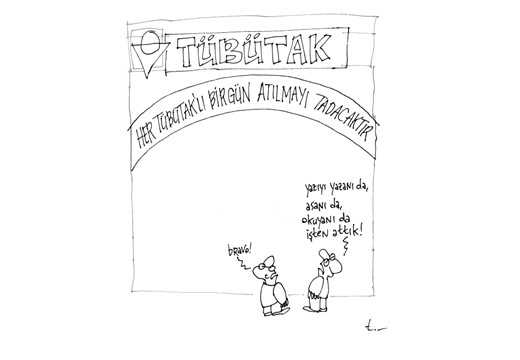 TÜBÜTAK
HER TÜBÜTAK'LI BİRGÜN ATILMAYI TADACAKTIR
yazıyı yazanı da,
asanı da,
okuyanı da
işten attık!
bravo!